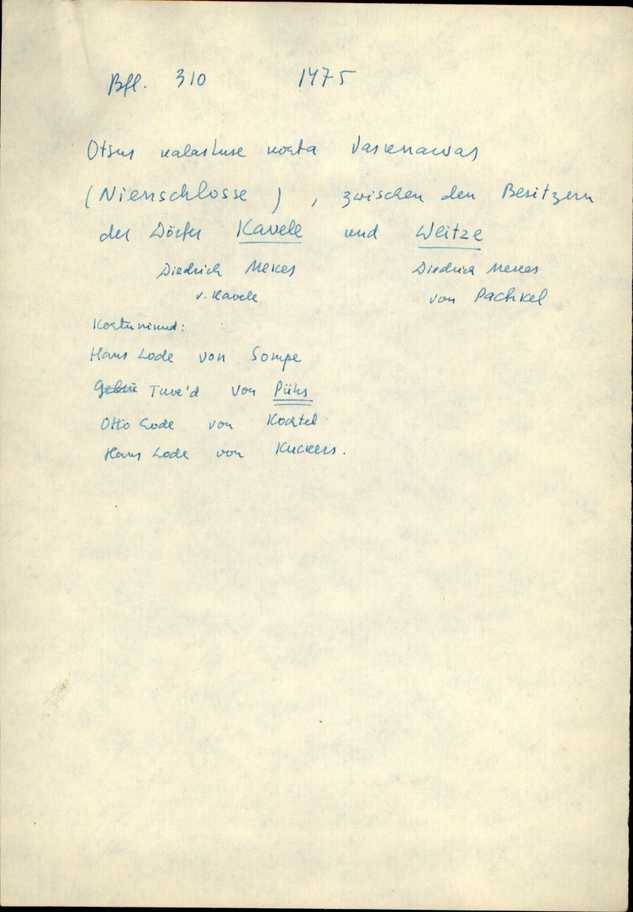 Bfl. 310 1475
Otsus kalastuse kohta Vasknarvas
(Nienschlosse), zwischen den Besitzern
der Dörfer Kavele und Weitze
Diedrich Mekes Diedrich Mekes
v. Kavele von Pachkel
Kohtunimed:
Hans Lode von Sompe
Tuve'd von Pühs
Otto Lode von Kochtel
Hans Lode von Kuckers.